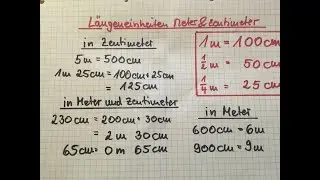 Längeneinheiten Meter & Zentimeter
in Zentimeter
5m = 500cm
1m 25cm = 100cm + 25cm
= 125cm
1m = 100cm
1/2 m = 50cm
1/4 m = 25cm
in Meter und Zentimeter
230cm = 200cm + 30cm
= 2m 30cm
65cm = 0m 65cm
in Meter
600cm = 6m
900cm = 9m